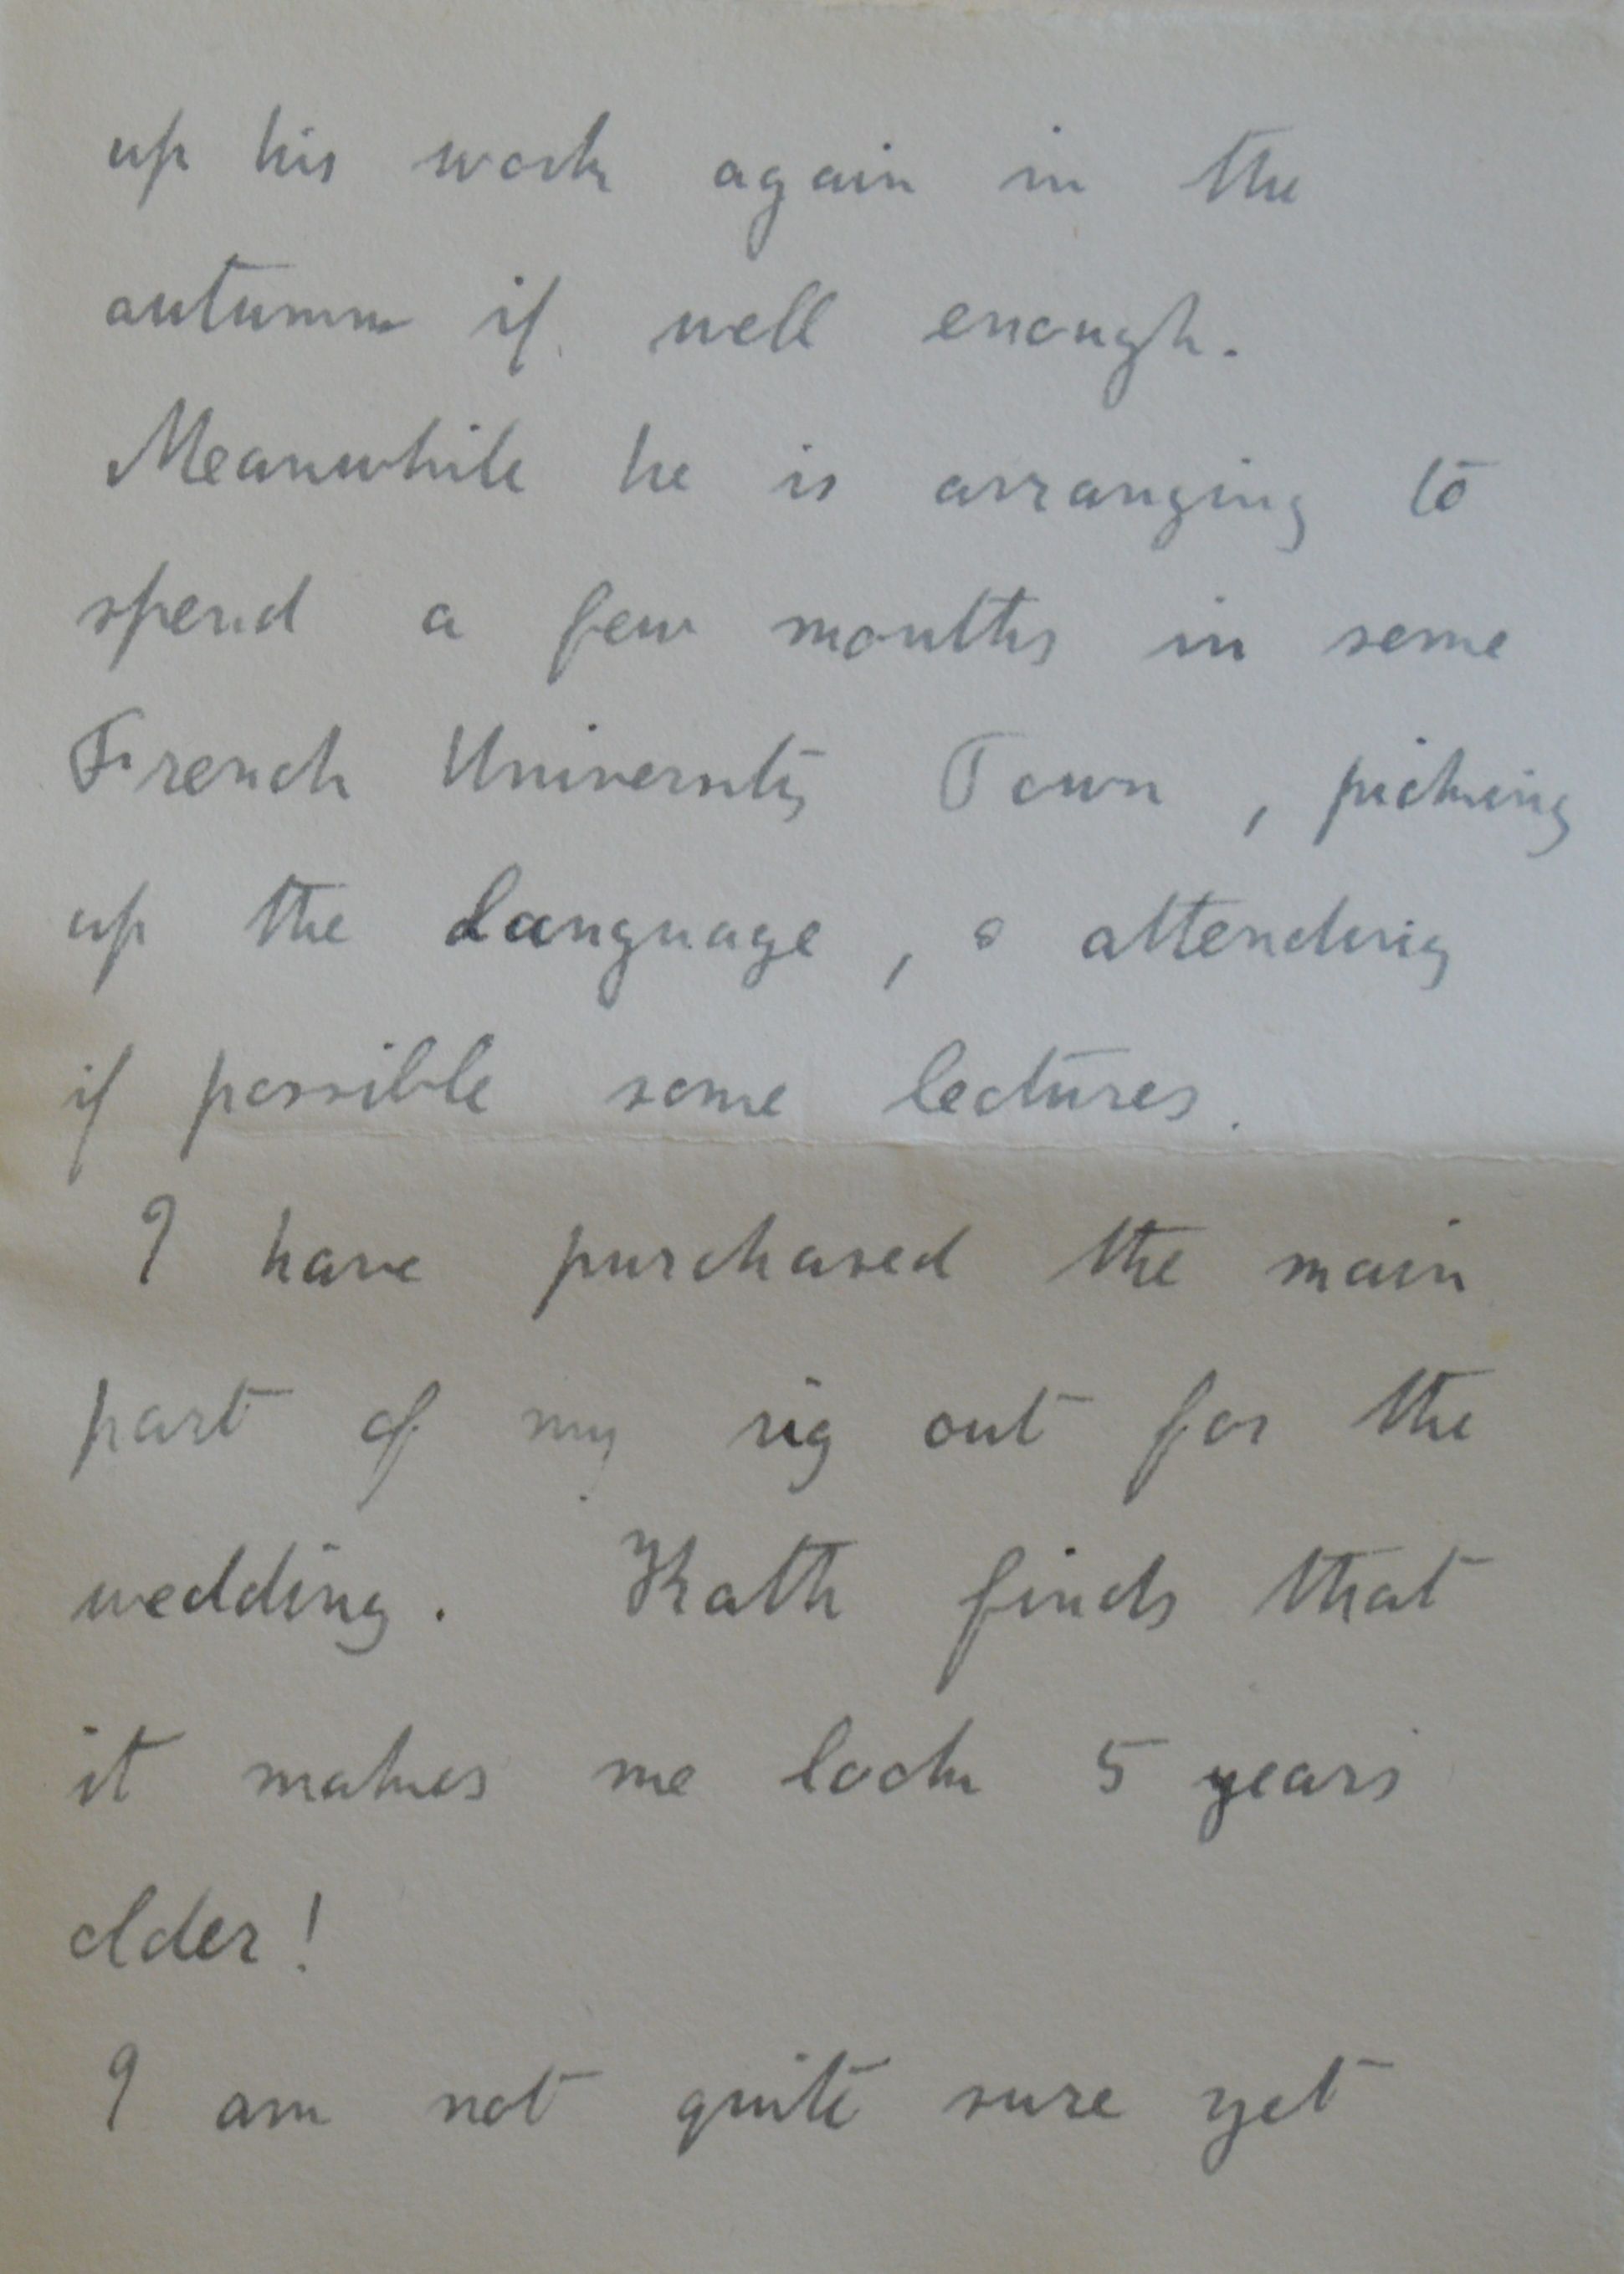 up his work again in the
autumn if well enough.
Meanwhile he is arranging to
spend a few months in some
French University Town, picking
up the language, & attending
if possible some lectures.
I have purchased the main
part of my rig out for the
wedding. Kath finds that
it makes me look 5 years
older!
I am not quite sure yet